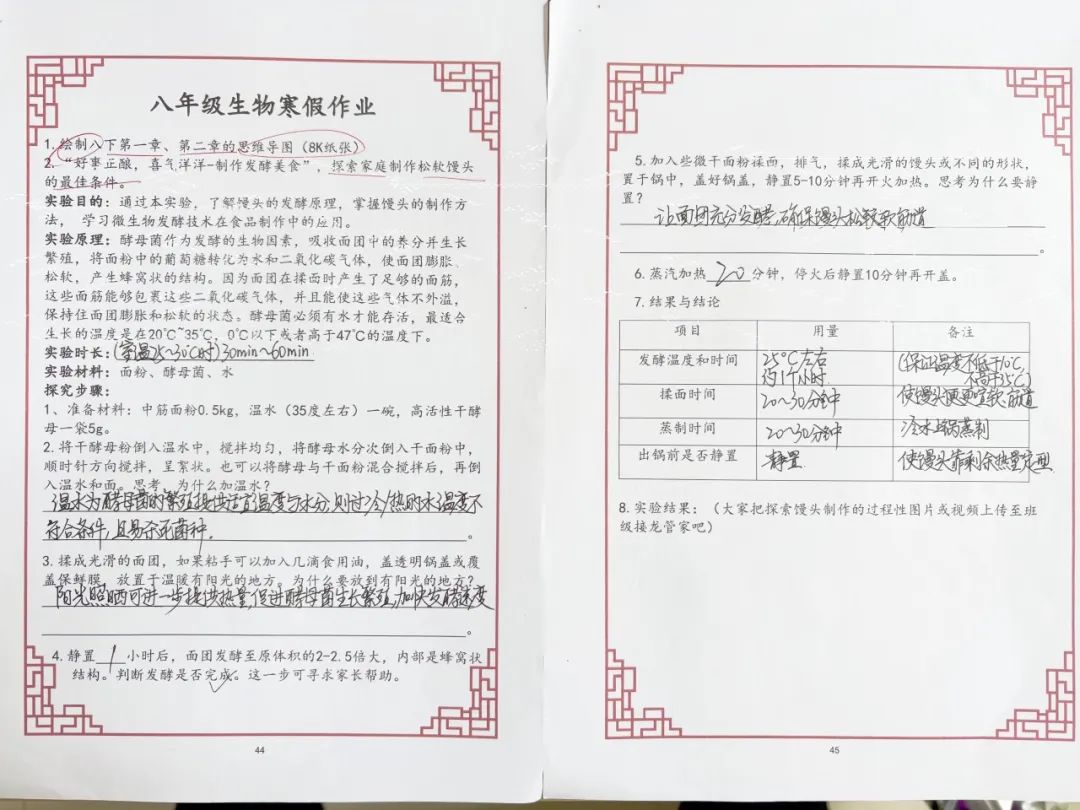 八年级生物寒假作业
1. 绘制八下第一章、第二章的思维导图（8K纸张）
2. “好枣正酿，喜气洋洋-制作发酵美食”，探索家庭制作松软馒头
的最佳条件。
实验目的：通过本实验，了解馒头的发酵原理，掌握馒头的制作方
法， 学习微生物发酵技术在食品制作中的应用。
实验原理：酵母菌作为发酵的生物因素，吸收面团中的养分并生长
繁殖，将面粉中的葡萄糖转化为水和二氧化碳气体，使面团膨胀、
松软，产生蜂窝状的结构。因为面团在揉面时产生了足够的面筋，
这些面筋能够包裹这些二氧化碳气体，并且能使这些气体不外溢，
保持住面团膨胀和松软的状态。酵母菌必须有水才能存活，最适合
生长的温度是在20℃~35℃，0℃以下或者高于47℃的温度下。
实验时长：(室温25~30℃时)30min~60min
实验材料：面粉、酵母菌、水
探究步骤：
1、准备材料：中筋面粉0.5kg，温水（35度左右）一碗，高活性干酵
母一袋5g。
2、将干酵母粉倒入温水中，搅拌均匀，将酵母水分次倒入干面粉中，
顺时针方向搅拌，呈絮状。也可以将酵母与干面粉混合搅拌后，再倒
入温水和面。思考，为什么加温水？
温水为酵母菌的繁殖提供适宜温度与水分,则过冷/热的水温度不
符合条件,且易杀死菌种.。
3、揉成光滑的面团，如果粘手可以加入几滴食用油，盖透明锅盖或覆
盖保鲜膜，放置于温暖有阳光的地方。为什么要放到有阳光的地方？
阳光照晒可进一步提供热量,促进酵母菌生长繁殖,加快发酵速度
。
4、静置1小时后，面团发酵至原体积的2-2.5倍大，内部是蜂窝状
结构。判断发酵是否完成。这一步可寻求家长帮助。
44
5. 加入些微干面粉揉面，排气，揉成光滑的馒头或不同的形状，
置于锅中，盖好锅盖，静置5-10分钟再开火加热。思考为什么要静
置？
让面团充分发酵,确保馒头松软筋道
。
6. 蒸汽加热20分钟，停火后静置10分钟再开盖。
7. 结果与结论
项目 用量 备注
发酵温度和时间 25℃左右 (保证温度不低于10℃,
约1个小时. 不高于35℃)
揉面时间 20~30分钟 使馒头更喧软.筋道
蒸制时间 20~30分钟 冷水上锅蒸制
出锅前是否静置 静置. 使馒头靠剩余热量定型
8. 实验结果：（大家把探索馒头制作的过程性图片或视频上传至班
级接龙管家吧）
45